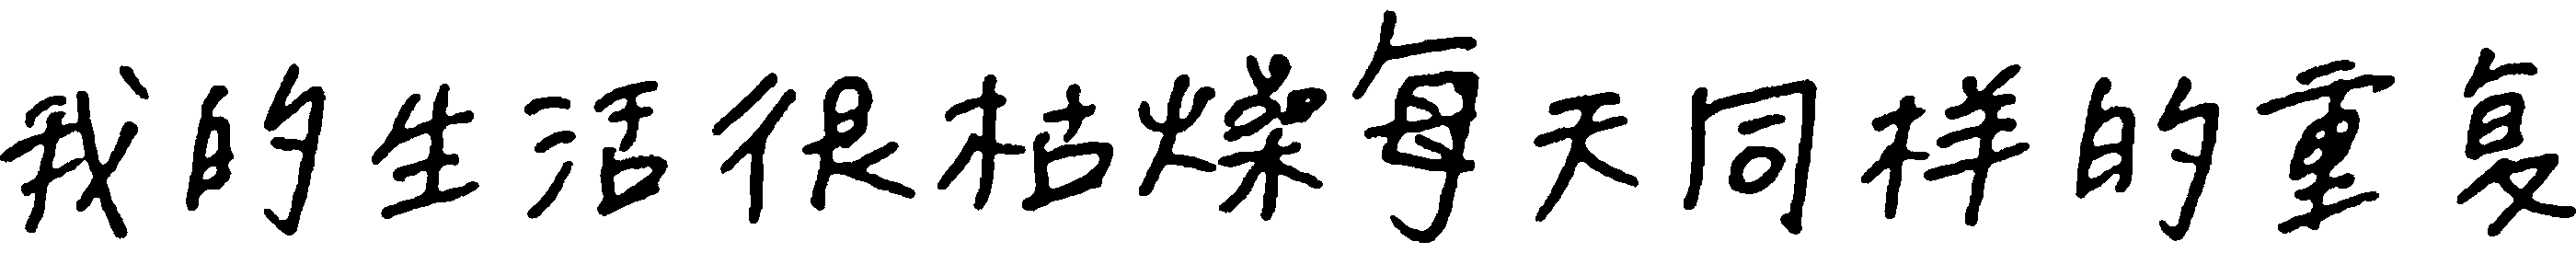 我的生活很枯燥每天同样的重复